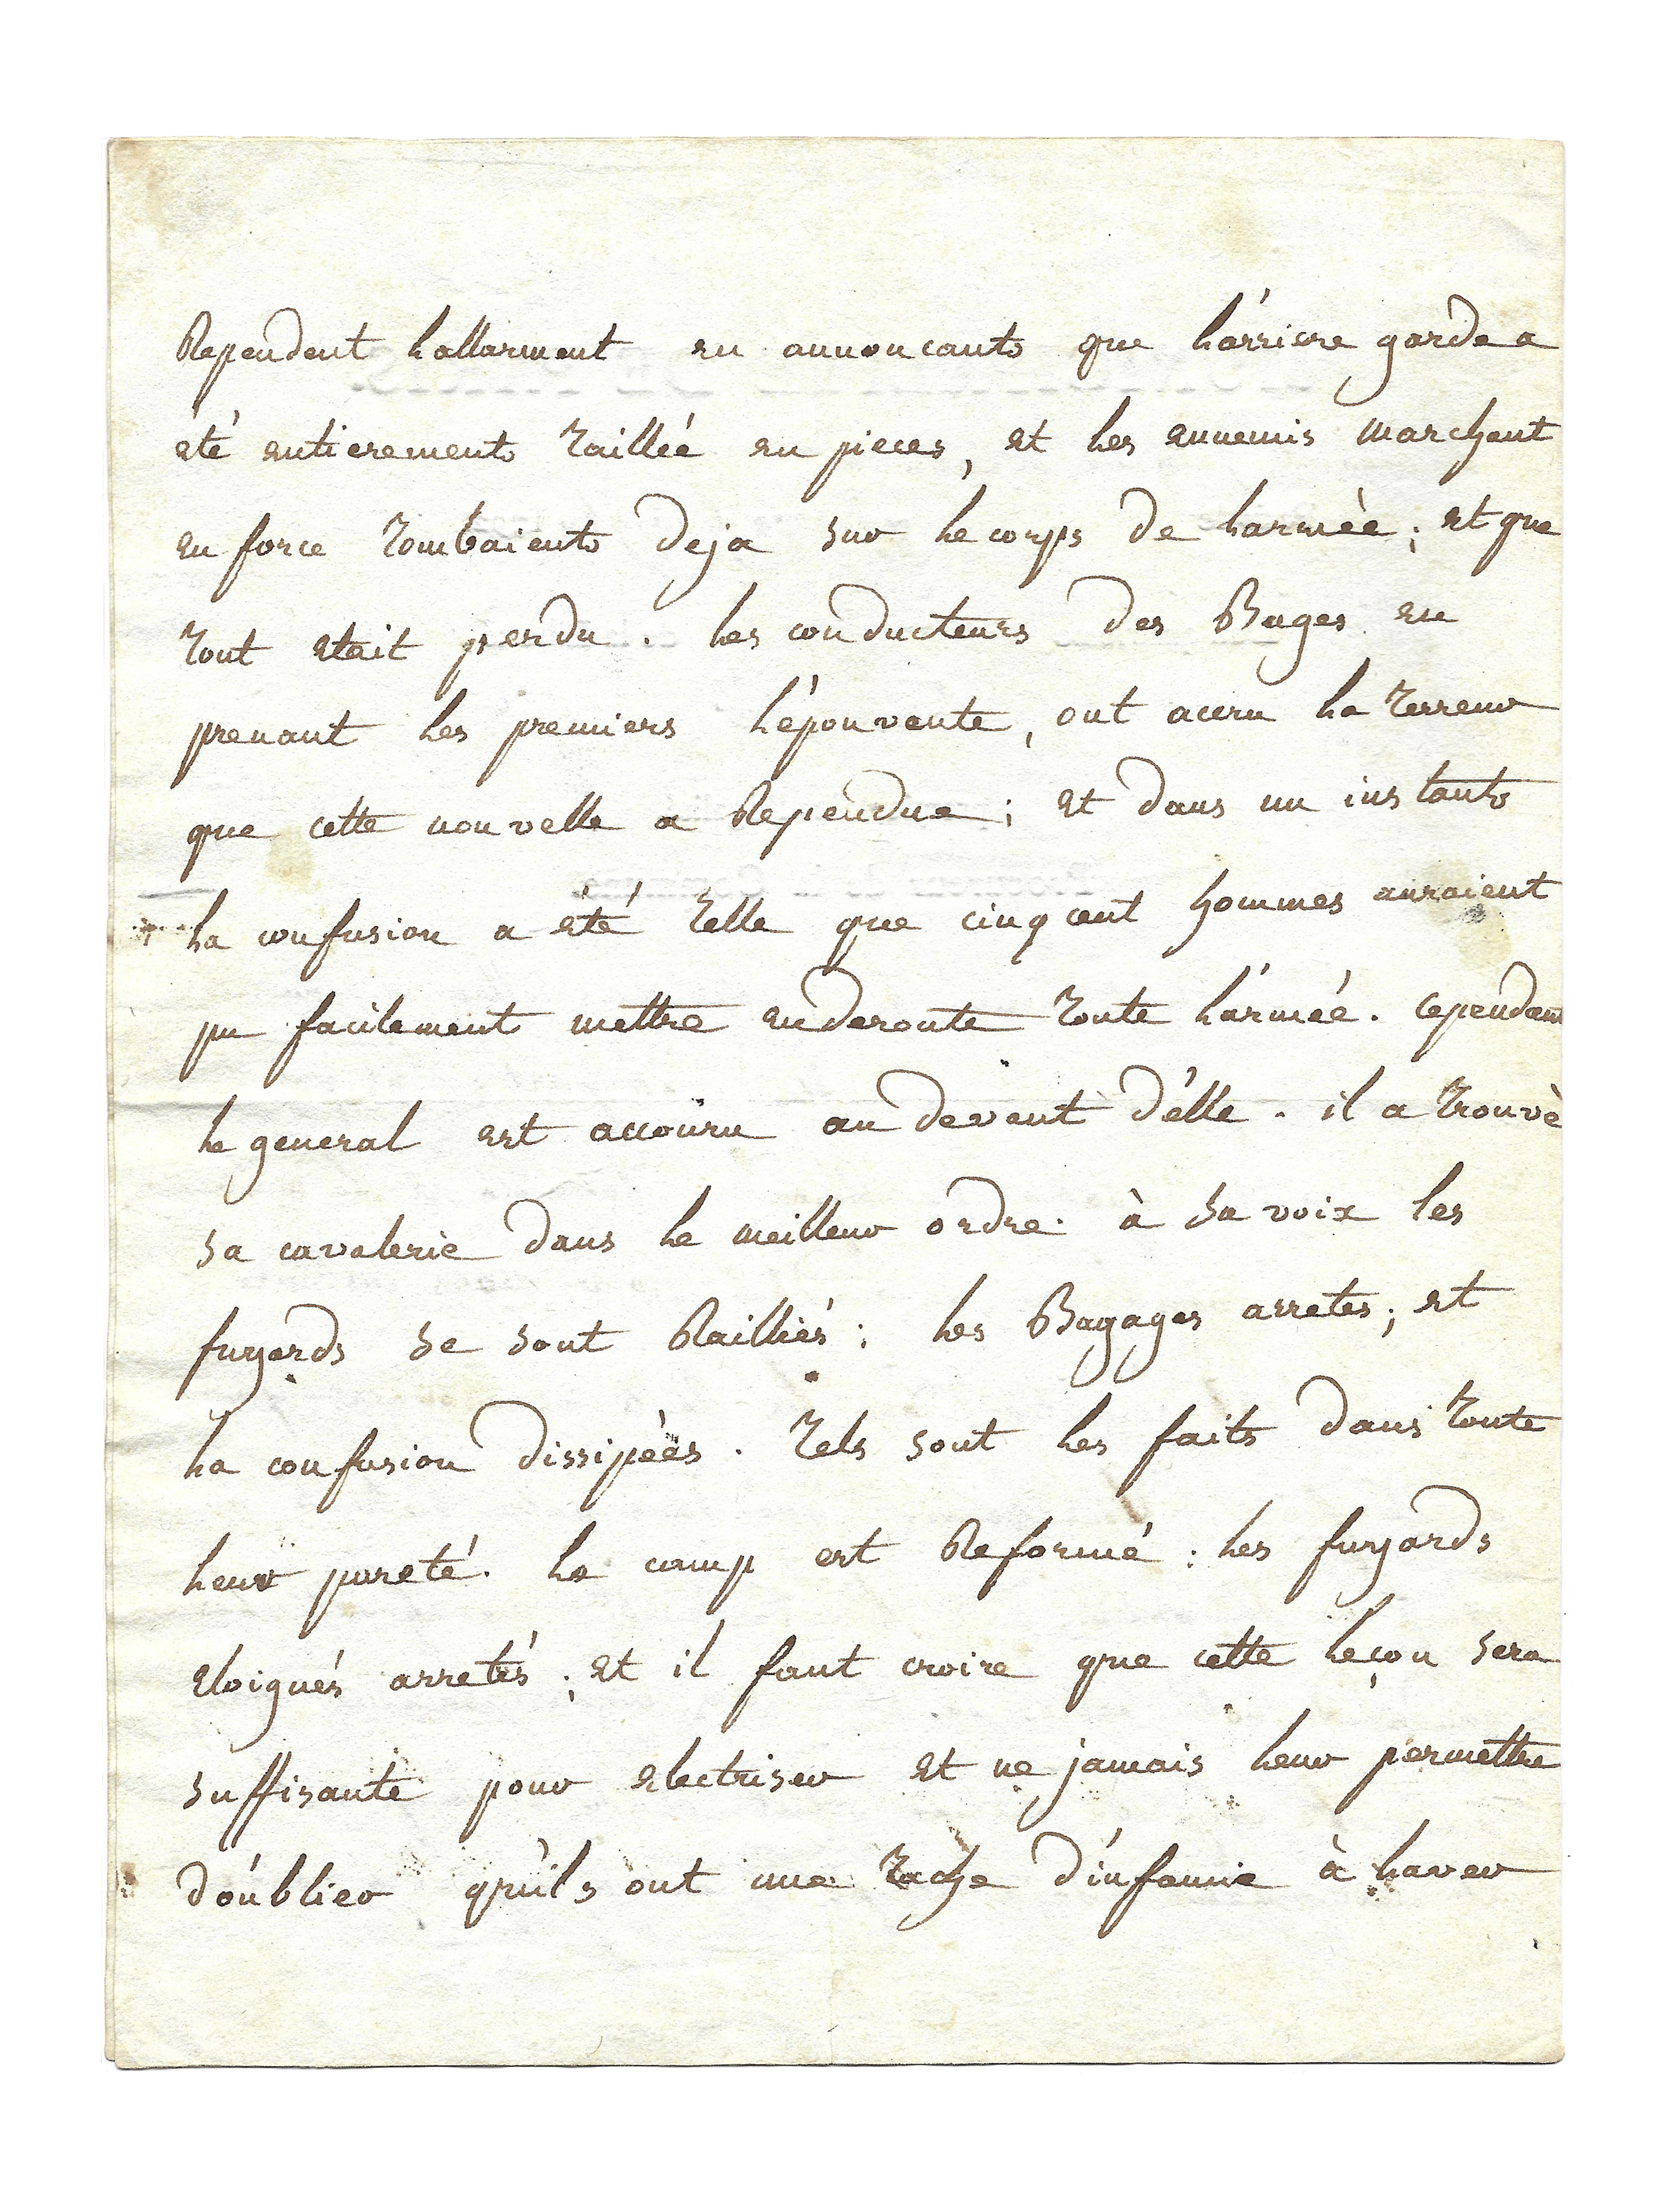 Rependent lallarment en annoncants que l'arriere garde a
eté entierements taillée en pieces, et les ennemis marchent
en force tombaients deja sur le corps de larmèe; et que
tout etait perdu. les conducteurs des Bages en
prenant les premiers l'épouvente, ont accru la terreur
que cette nouvelle a Rependue; et dans un instants
la confusion a été telle que cinq cent hommes auraient
pu facilements mettre en deroute toute l'armée. cependant
le general est accouru au devent d'élle. il a trouvè
sa cavalerie dans le meilleur ordre. à sa voix les
fuyards se sont Railliés; les Bagages arretes; et
la confusion dissipèes. tels sont les faits dans toute
leur pureté. le camp est Reformé: les fuyards
eloignés arretés; et il faut croire que cette leçon sera
suffisante pour electriser et ne jamais leur permettre
d'oublier qu'ils ont une tache d'infamie à laver